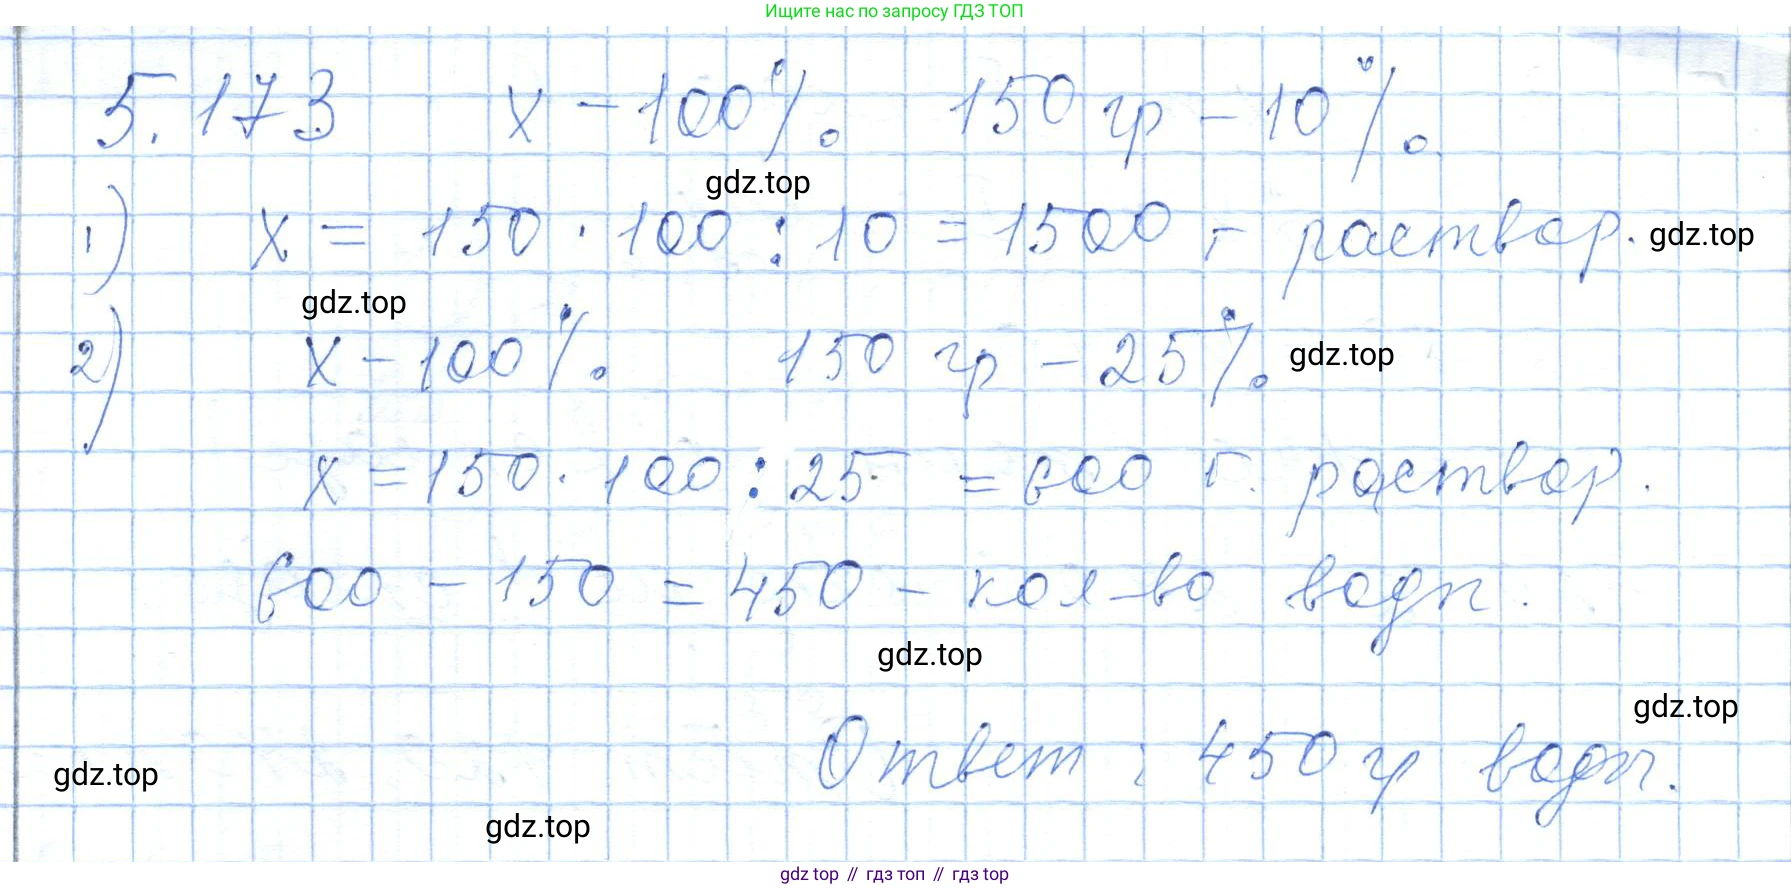 Ищите нас по запросу ГДЗ ТОП
5.173 x - 100% 150 гр - 10%
gdz.top
1) x = 150 · 100 : 10 = 1500 г раствор. gdz.top
gdz.top
2) x - 100% 150 гр - 25% gdz.top
x = 150 · 100 : 25 = 600 г. раствор.
600 - 150 = 450 - кол-во воды.
gdz.top
gdz.top
Ответ: 450 гр воды.
gdz.top
gdz.top
gdz top // гдз топ // гдз top